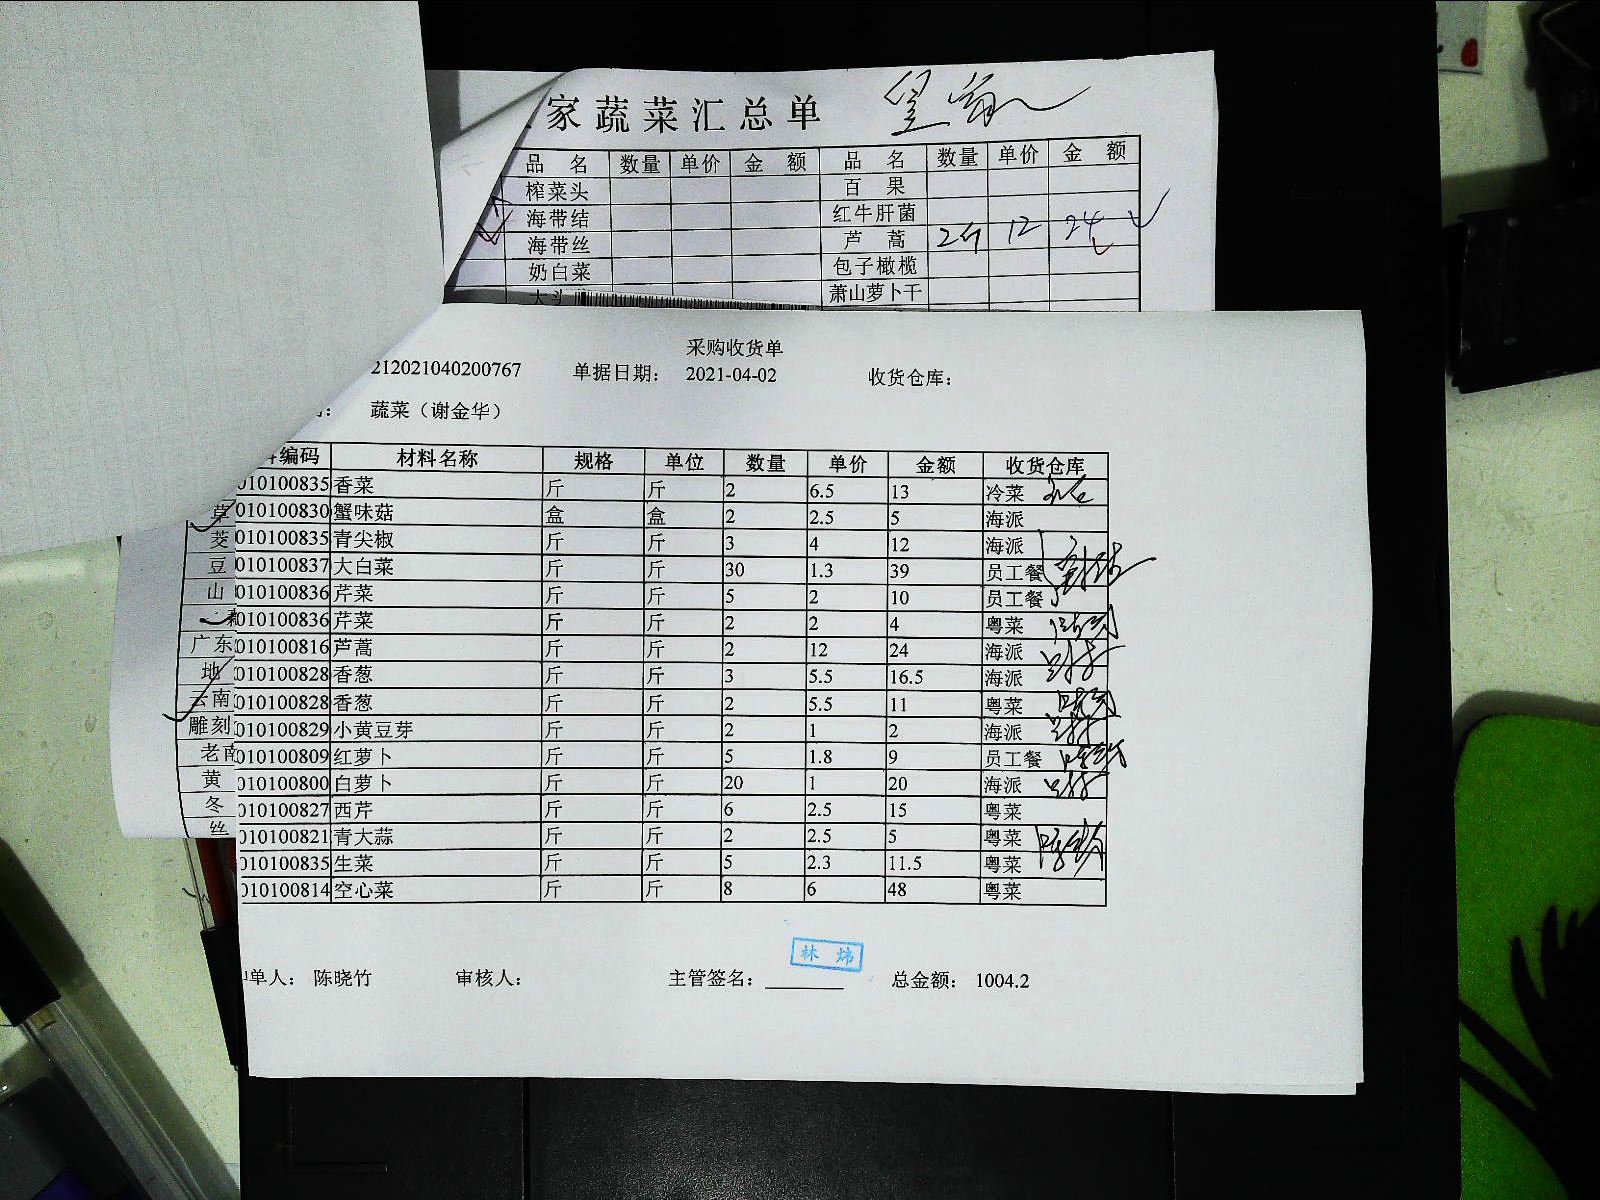 家蔬菜汇总单
品 名 数量 单价 金 额 品 名 数量 单价 金 额
榨菜头 百 果
海带结 红牛肝菌
海带丝 芦 蒿 2斤 12 24
奶白菜 包子橄榄
大头 萧山萝卜干
采购收货单
212021040200767 单据日期: 2021-04-02 收货仓库:
: 蔬菜（谢金华）
编码 材料名称 规格 单位 数量 单价 金额 收货仓库
010100835 香菜 斤 斤 2 6.5 13 冷菜
010100830 蟹味菇 盒 盒 2 2.5 5 海派
010100835 青尖椒 斤 斤 3 4 12 海派
010100837 大白菜 斤 斤 30 1.3 39 员工餐
010100836 芹菜 斤 斤 5 2 10 员工餐
010100836 芹菜 斤 斤 2 2 4 粤菜
010100816 芦蒿 斤 斤 2 12 24 海派
010100828 香葱 斤 斤 3 5.5 16.5 海派
010100828 香葱 斤 斤 2 5.5 11 粤菜
010100829 小黄豆芽 斤 斤 2 1 2 海派
010100809 红萝卜 斤 斤 5 1.8 9 员工餐
010100800 白萝卜 斤 斤 20 1 20 海派
010100827 西芹 斤 斤 6 2.5 15 粤菜
010100821 青大蒜 斤 斤 2 2.5 5 粤菜
010100835 生菜 斤 斤 5 2.3 11.5 粤菜
010100814 空心菜 斤 斤 8 6 48 粤菜
草
茭
豆
山
广东
地
云南
雕刻
老南
黄
冬
丝
林 炜
单人: 陈晓竹 审核人: 主管签名: 总金额: 1004.2